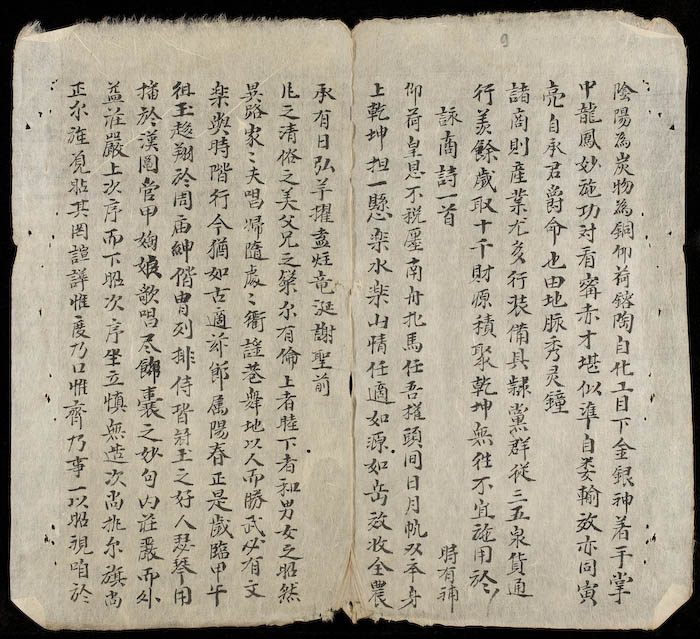 9
陰陽為炭物為銅仰荷鎔陶自化工目下金銀神着手掌
中龍鳳妙施功対看寗赤才堪似準自委輸放亦同寅
亮自承君爵命也由地脉秀灵鐘
諸商則産業尤多行裝備具隸黨群從三五泉貨通
行羡餘歳取十千財源積聚乾坤無往不宜施用於
時有補
詠商詩一首
仰荷皇恩不税廛南舟北馬任吾權頭間日月帆以傘身
上乾坤担一懸楽水楽山情任適如源如岳放收全農
承有日弘羊擢盍炷竜涎謝聖前
民之清俗之美父兄之 尔有倫上者睦下者和男女之昭然
異路家〻夫唱婦隨處〻衢謡巷舞地以人而勝武必有文
楽與時階行今猶如古適茲節属陽春正是歳臨甲午
徂玉趁翔於周庙紳偕胄列排侍珰冠玉之好人瑟琴用
擂於漢圈管甲姰娘歌唱尽錦囊之妙句内荘嚴而外
益荘嚴上次序而下昭次序坐立慎無造次尚排尔旗尚
正尔旌 其圈諠譁惟度乃口惟齊乃事一以昭視 於